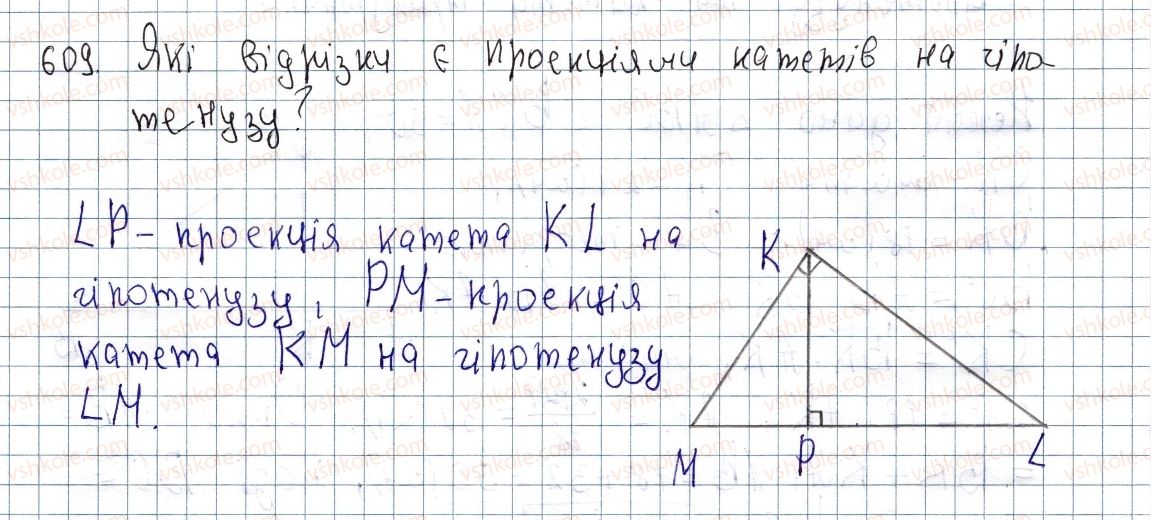 609. Які відрізки є проекціями катетів на гіпо
тенузу?
LP – проекція катета KL на
гіпотенузу, PM – проекція
катета KM на гіпотенузу
LM.
K
M P L
vshkole.com